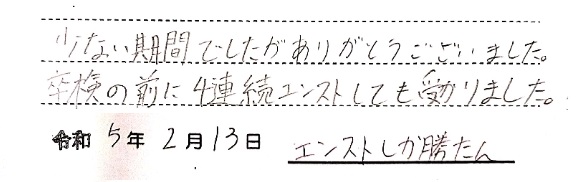 少ない期間でしたがありがとうございました。
卒検の前に4連続エンストしても受かりました。
令和 5年 2月 13日 エンストしか勝たん